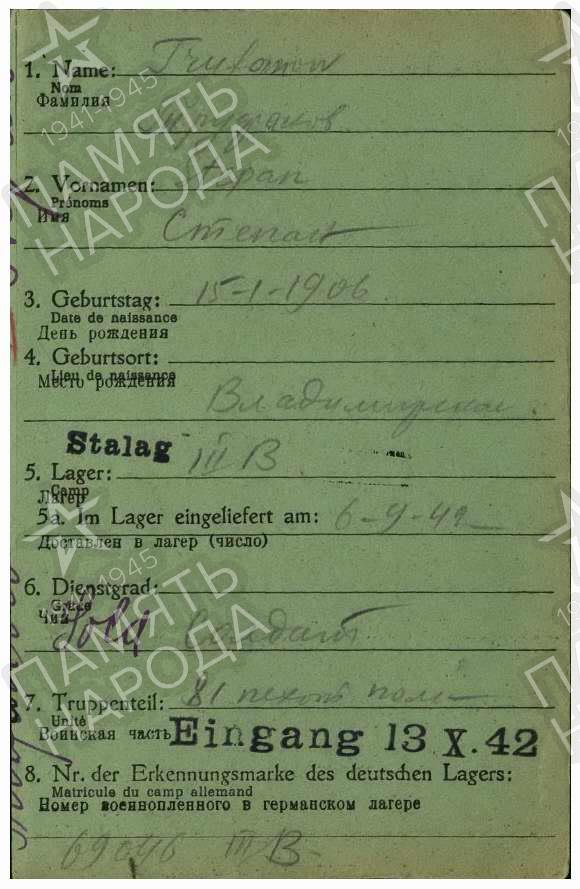 1. Name:
Nom
Фамилия
2. Vornamen:
Prénoms
Имя
Степан
3. Geburtstag: 15-1-1906
Date de naissance
День рождения
4. Geburtsort:
Lieu de naissance
Место рождения
Владимирская
Stalag
5. Lager: III B
Camp
Лагерь
5a. Im Lager eingeliefert am: 6-9-42
Доставлен в лагерь (число)
6. Dienstgrad:
Grade
Чин
Sold Солдат
7. Truppenteil: 81
Unité
Воинская часть Eingang 13 X. 42
8. Nr. der Erkennungsmarke des deutschen Lagers:
Matricule du camp allemand
Номер военнопленного в германском лагере
69046 III B
1941-1945
ПАМЯТЬ
НАРОДА
1941-1945
ПАМЯТЬ
НАРОДА